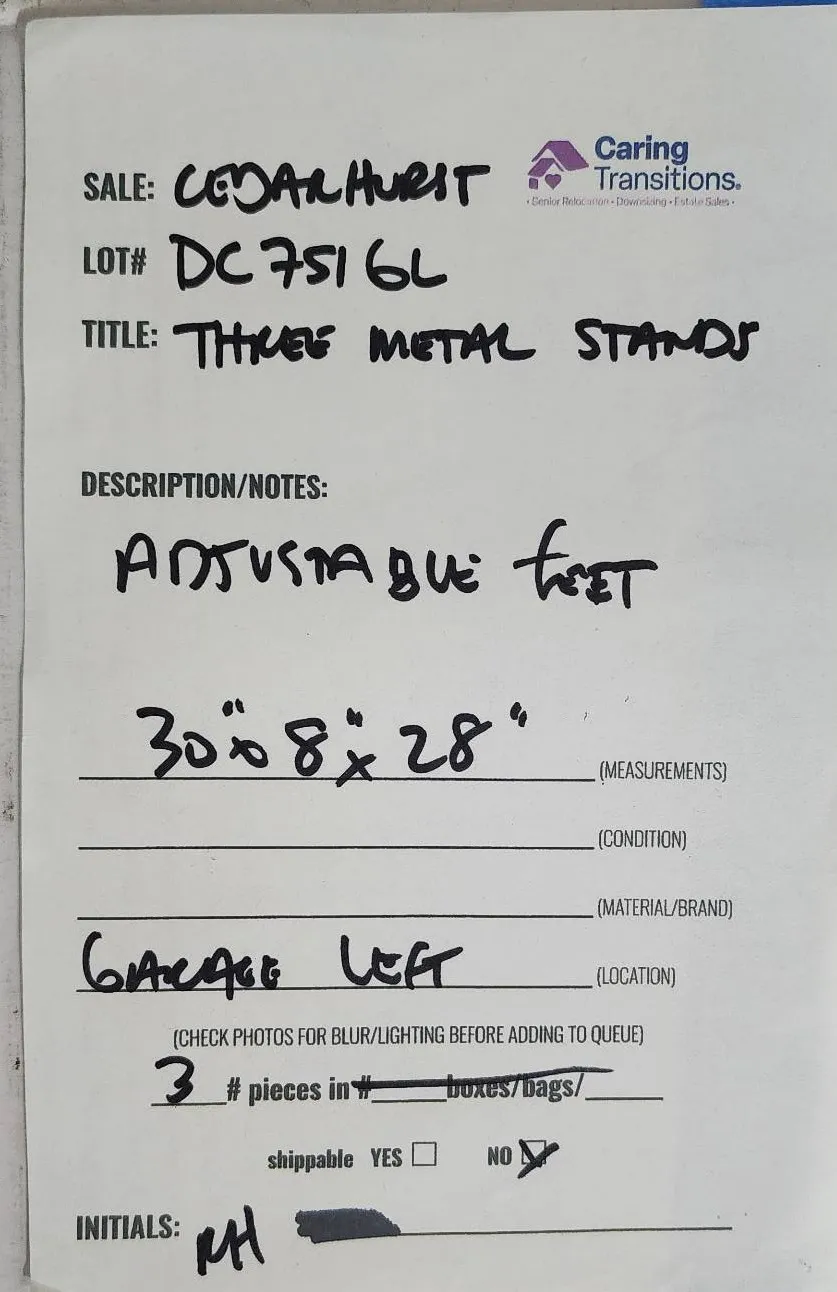 Caring
SALE: CEDARHURST Transitions.
• Senior Relocation • Downsizing • Estate Sales •
LOT# DC7516L
TITLE: THREE METAL STANDS
DESCRIPTION/NOTES:
ADJUSTABLE feET
30" x 8" x 28" (MEASUREMENTS)
(CONDITION)
(MATERIAL/BRAND)
GARAGE LEFT (LOCATION)
(CHECK PHOTOS FOR BLUR/LIGHTING BEFORE ADDING TO QUEUE)
3 # pieces in # boxes/bags/
shippable YES NO
INITIALS: RH